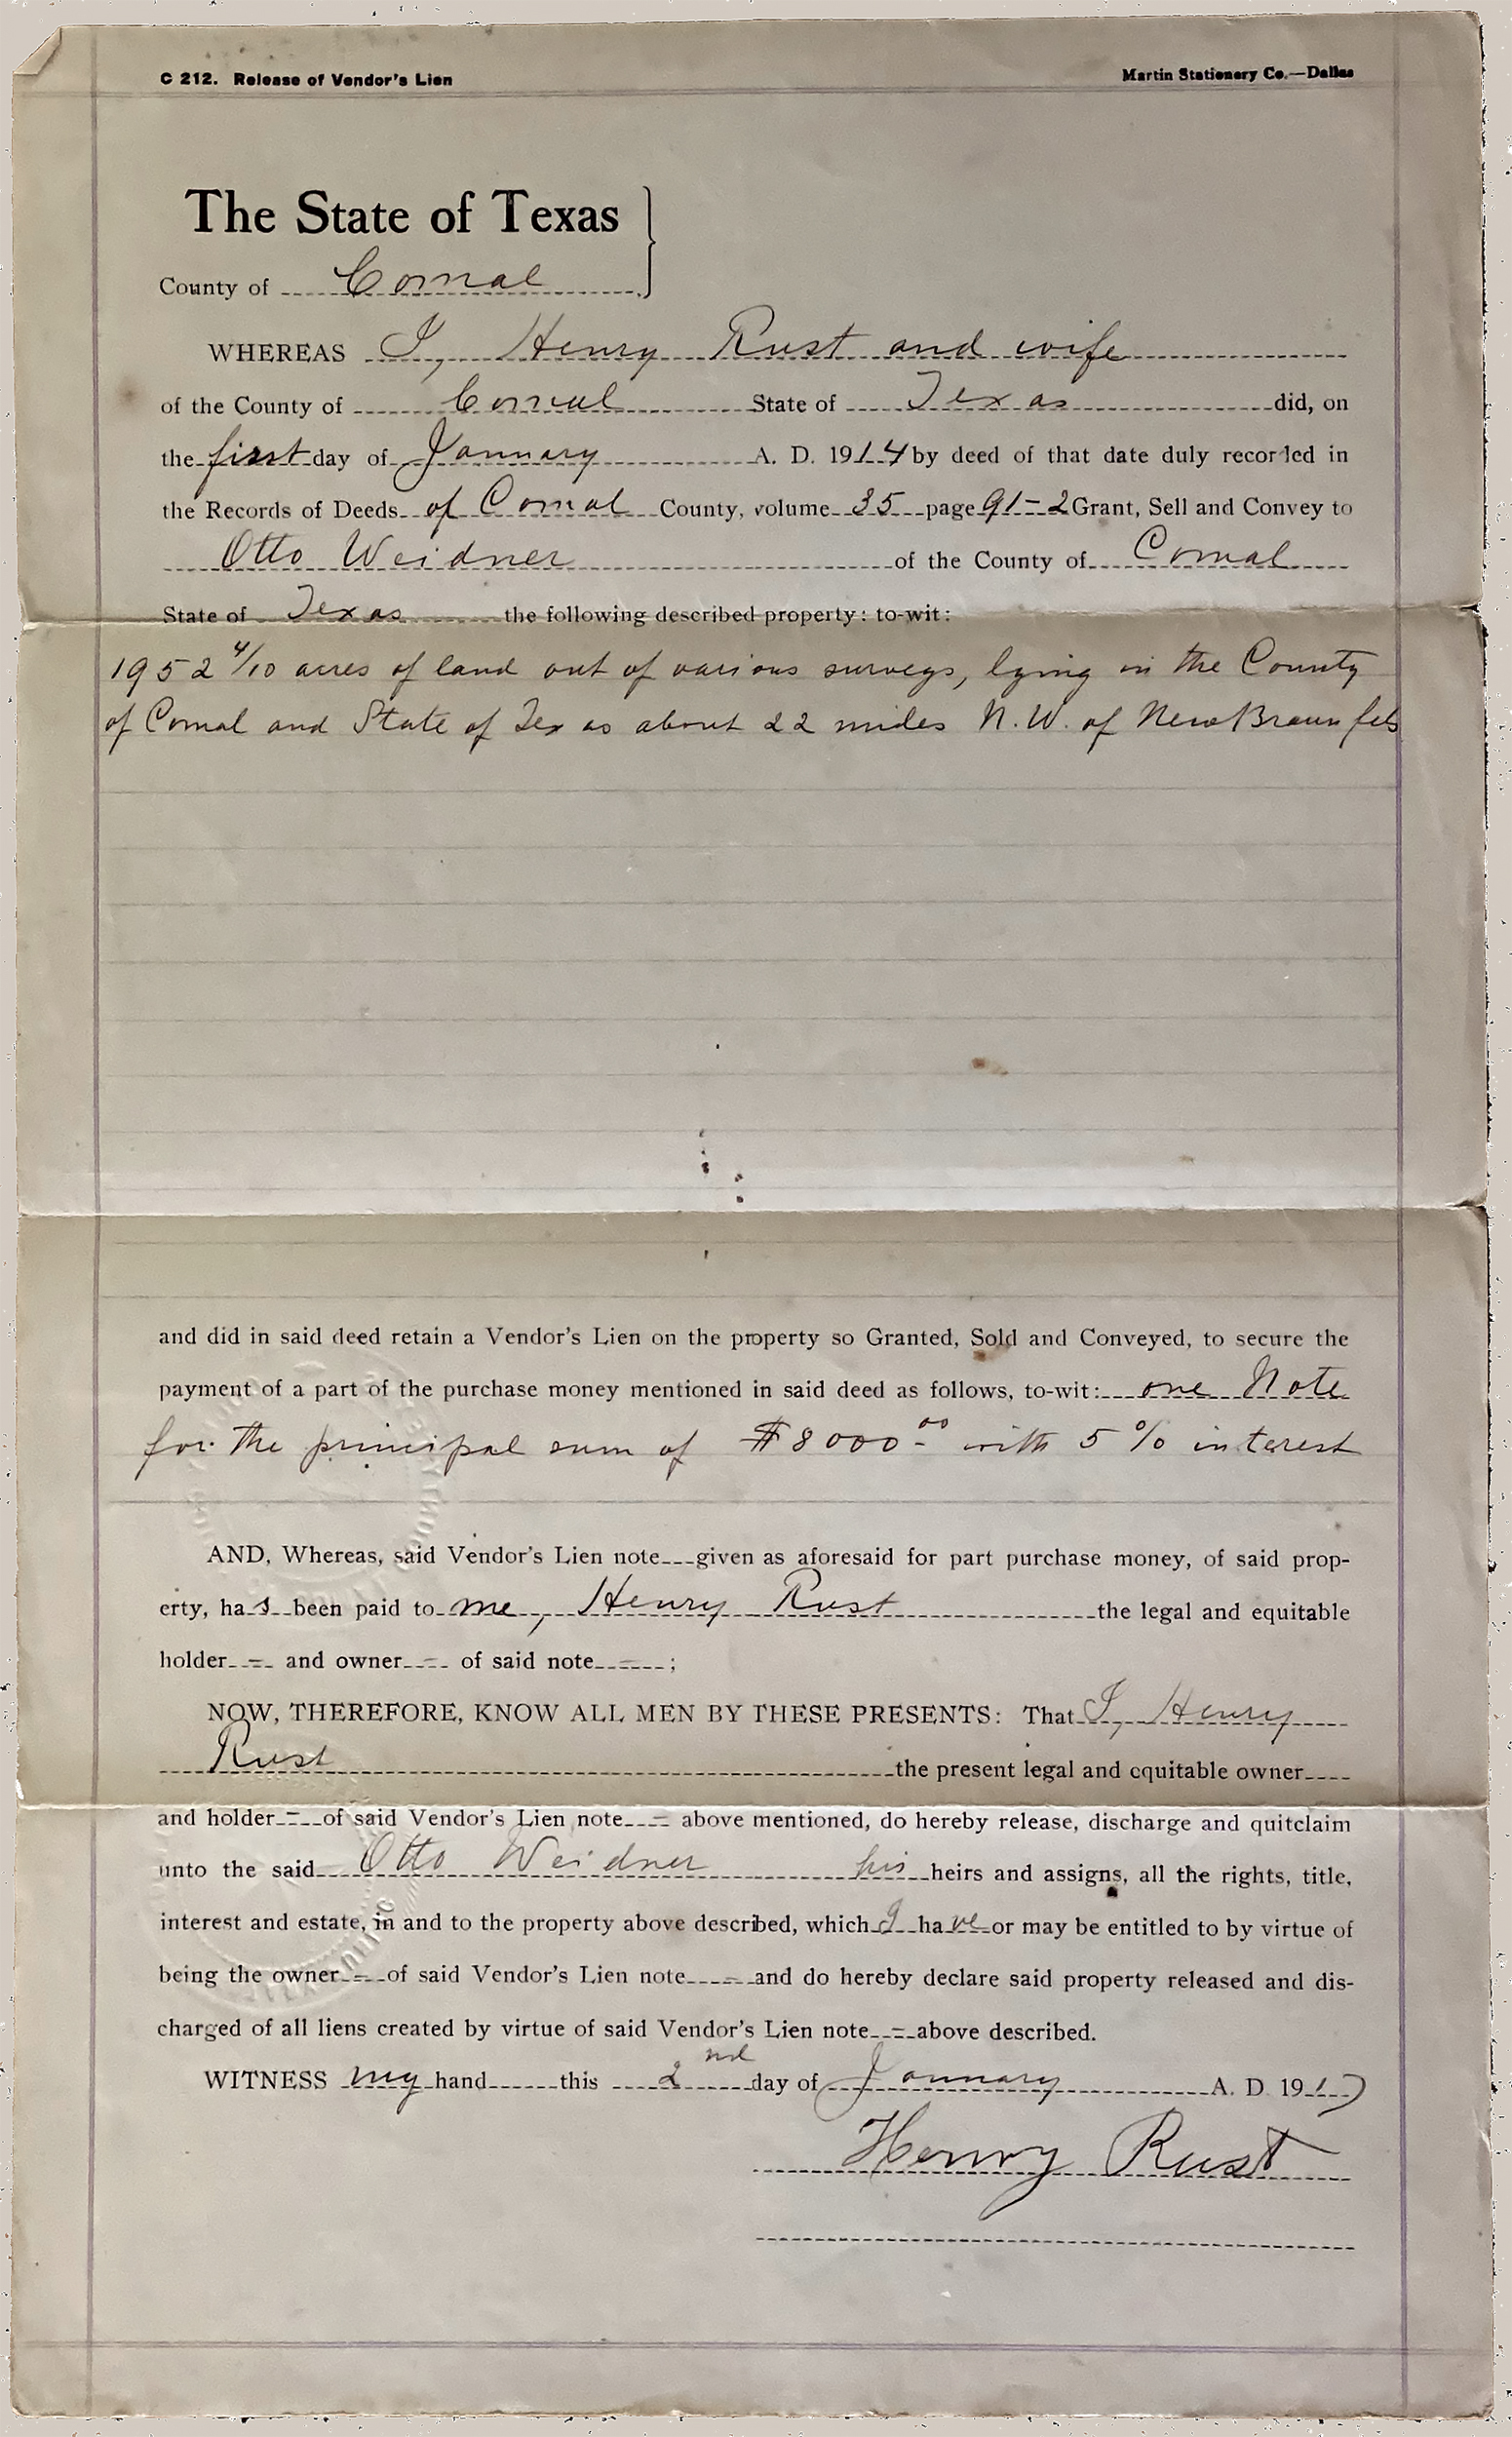 C 212. Release of Vendor's Lien
Martin Stationery Co.—Dallas
The State of Texas
County of Comal
WHEREAS I, Henry Rust and wife
of the County of Comal State of Texas did, on
the first day of January A. D. 1914 by deed of that date duly recorded in
the Records of Deeds of Comal County, volume 35 page 91-2 Grant, Sell and Convey to
Otto Weidner of the County of Comal
State of Texas the following described property: to-wit:
1952 4/10 acres of land out of various surveys, lying in the County
of Comal and State of Texas about 22 miles N.W. of New Braunfels
and did in said deed retain a Vendor's Lien on the property so Granted, Sold and Conveyed, to secure the
payment of a part of the purchase money mentioned in said deed as follows, to-wit: one Note
for the principal sum of $8000.00 with 5% interest
AND, Whereas, said Vendor's Lien note given as aforesaid for part purchase money, of said prop-
erty, has been paid to me, Henry Rust the legal and equitable
holder and owner of said note ;
NOW, THEREFORE, KNOW ALL MEN BY THESE PRESENTS: That I, Henry
Rust the present legal and equitable owner
and holder of said Vendor's Lien note above mentioned, do hereby release, discharge and quitclaim
unto the said Otto Weidner his heirs and assigns, all the rights, title,
interest and estate, in and to the property above described, which I have or may be entitled to by virtue of
being the owner of said Vendor's Lien note and do hereby declare said property released and dis-
charged of all liens created by virtue of said Vendor's Lien note above described.
WITNESS my hand this 2nd day of January A. D. 1917
Henry Rust